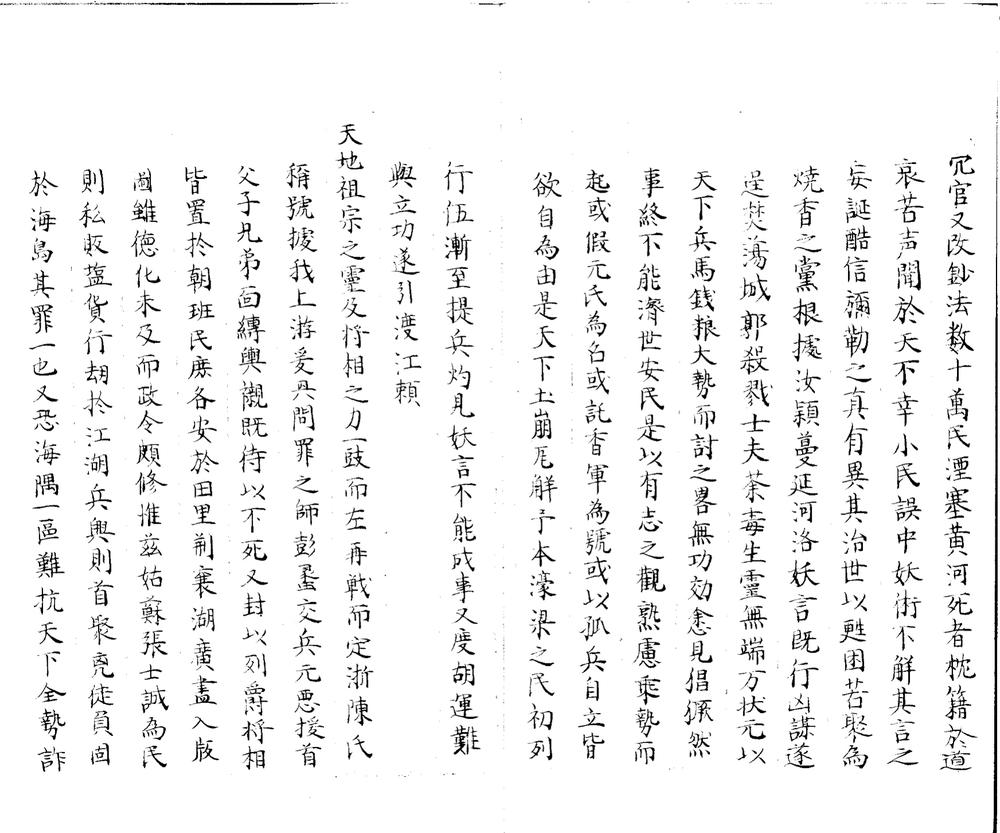 冗官又改鈔法数十萬民湮塞黄河死者枕籍於道
哀苦声聞於天不幸小民誤中妖術不解其言之
妄誕酷信彌勒之真有異其治世以甦困苦聚為
燒香之黨根據汝潁蔓延河洛妖言既行凶謀遂
逞焚蕩城郭殺戮士夫荼毒生靈無端万状元以
天下兵馬錢粮大勢而討之畧無功効愈見猖獗然
事終不能濟世安民是以有志之觀熟慮乘勢而
起或假元氏為名或託香軍為號或以孤兵自立皆
欲自為由是天下土崩瓦解予本濠梁之民初列
行伍漸至提兵灼見妖言不能成事又度胡運難
與立功遂引渡江頼
天地祖宗之靈及将相之力一鼓而左再戦而定浙陳氏
稱號據我上游爰興問罪之師彭蠡交兵元悪授首
父子兄弟面縛輿櫬既待以不死又封以列爵将相
皆置於朝班民庶各安於田里荆襄湖廣盡入版
圖雖徳化未及而政令頗修惟兹姑蘇張士誠為民
則私販塩貨行刼於江湖兵興則首聚兇徒負固
於海島其罪一也又恐海隅一區難抗天下全勢詐